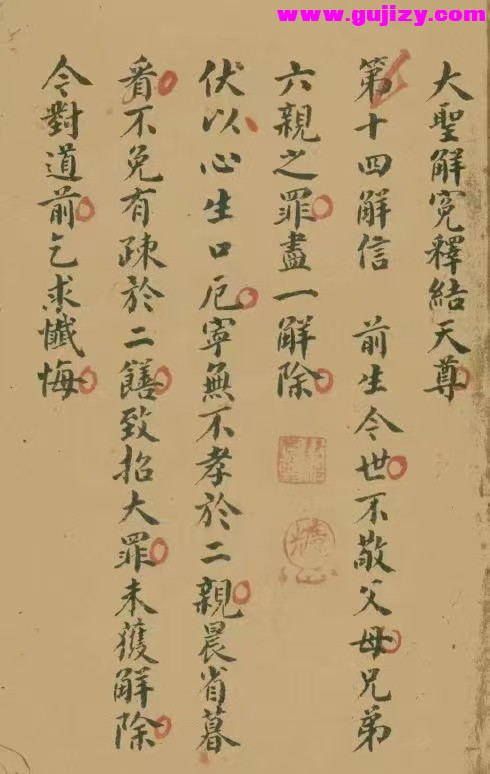 www.gujizy.com
大聖解寃釋結天尊
第十四解信 前生今世不敬父母兄弟
六親之罪盡一解除
伏以心生口厄寧無不孝於二親晨省暮
看不免有疎於二饍致招大罪未獲解除
今對道前乞求懺悔